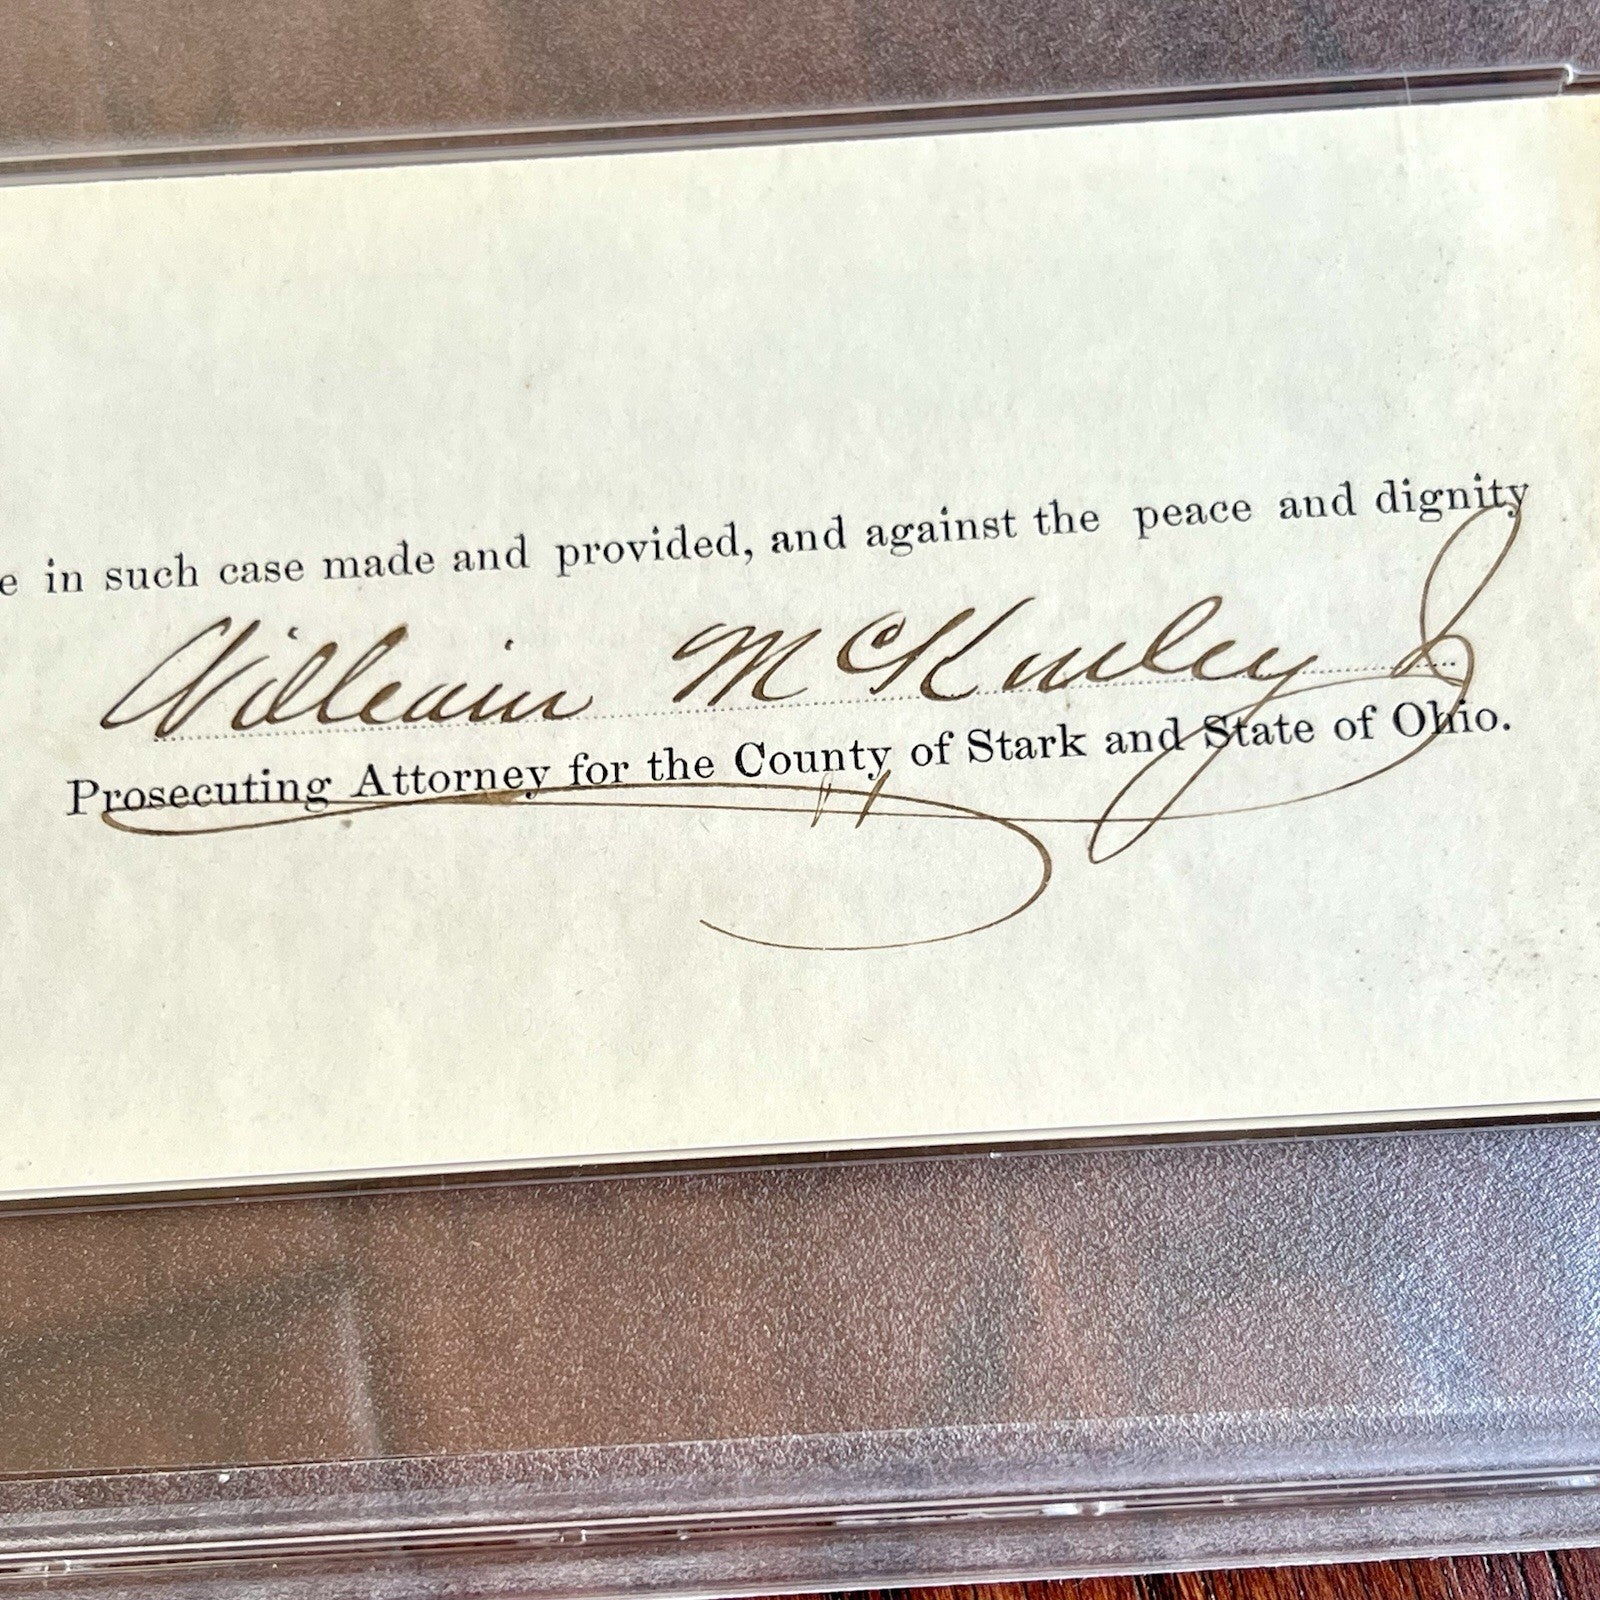 e in such case made and provided, and against the peace and dignity
William McKinley Jr
Prosecuting Attorney for the County of Stark and State of Ohio.